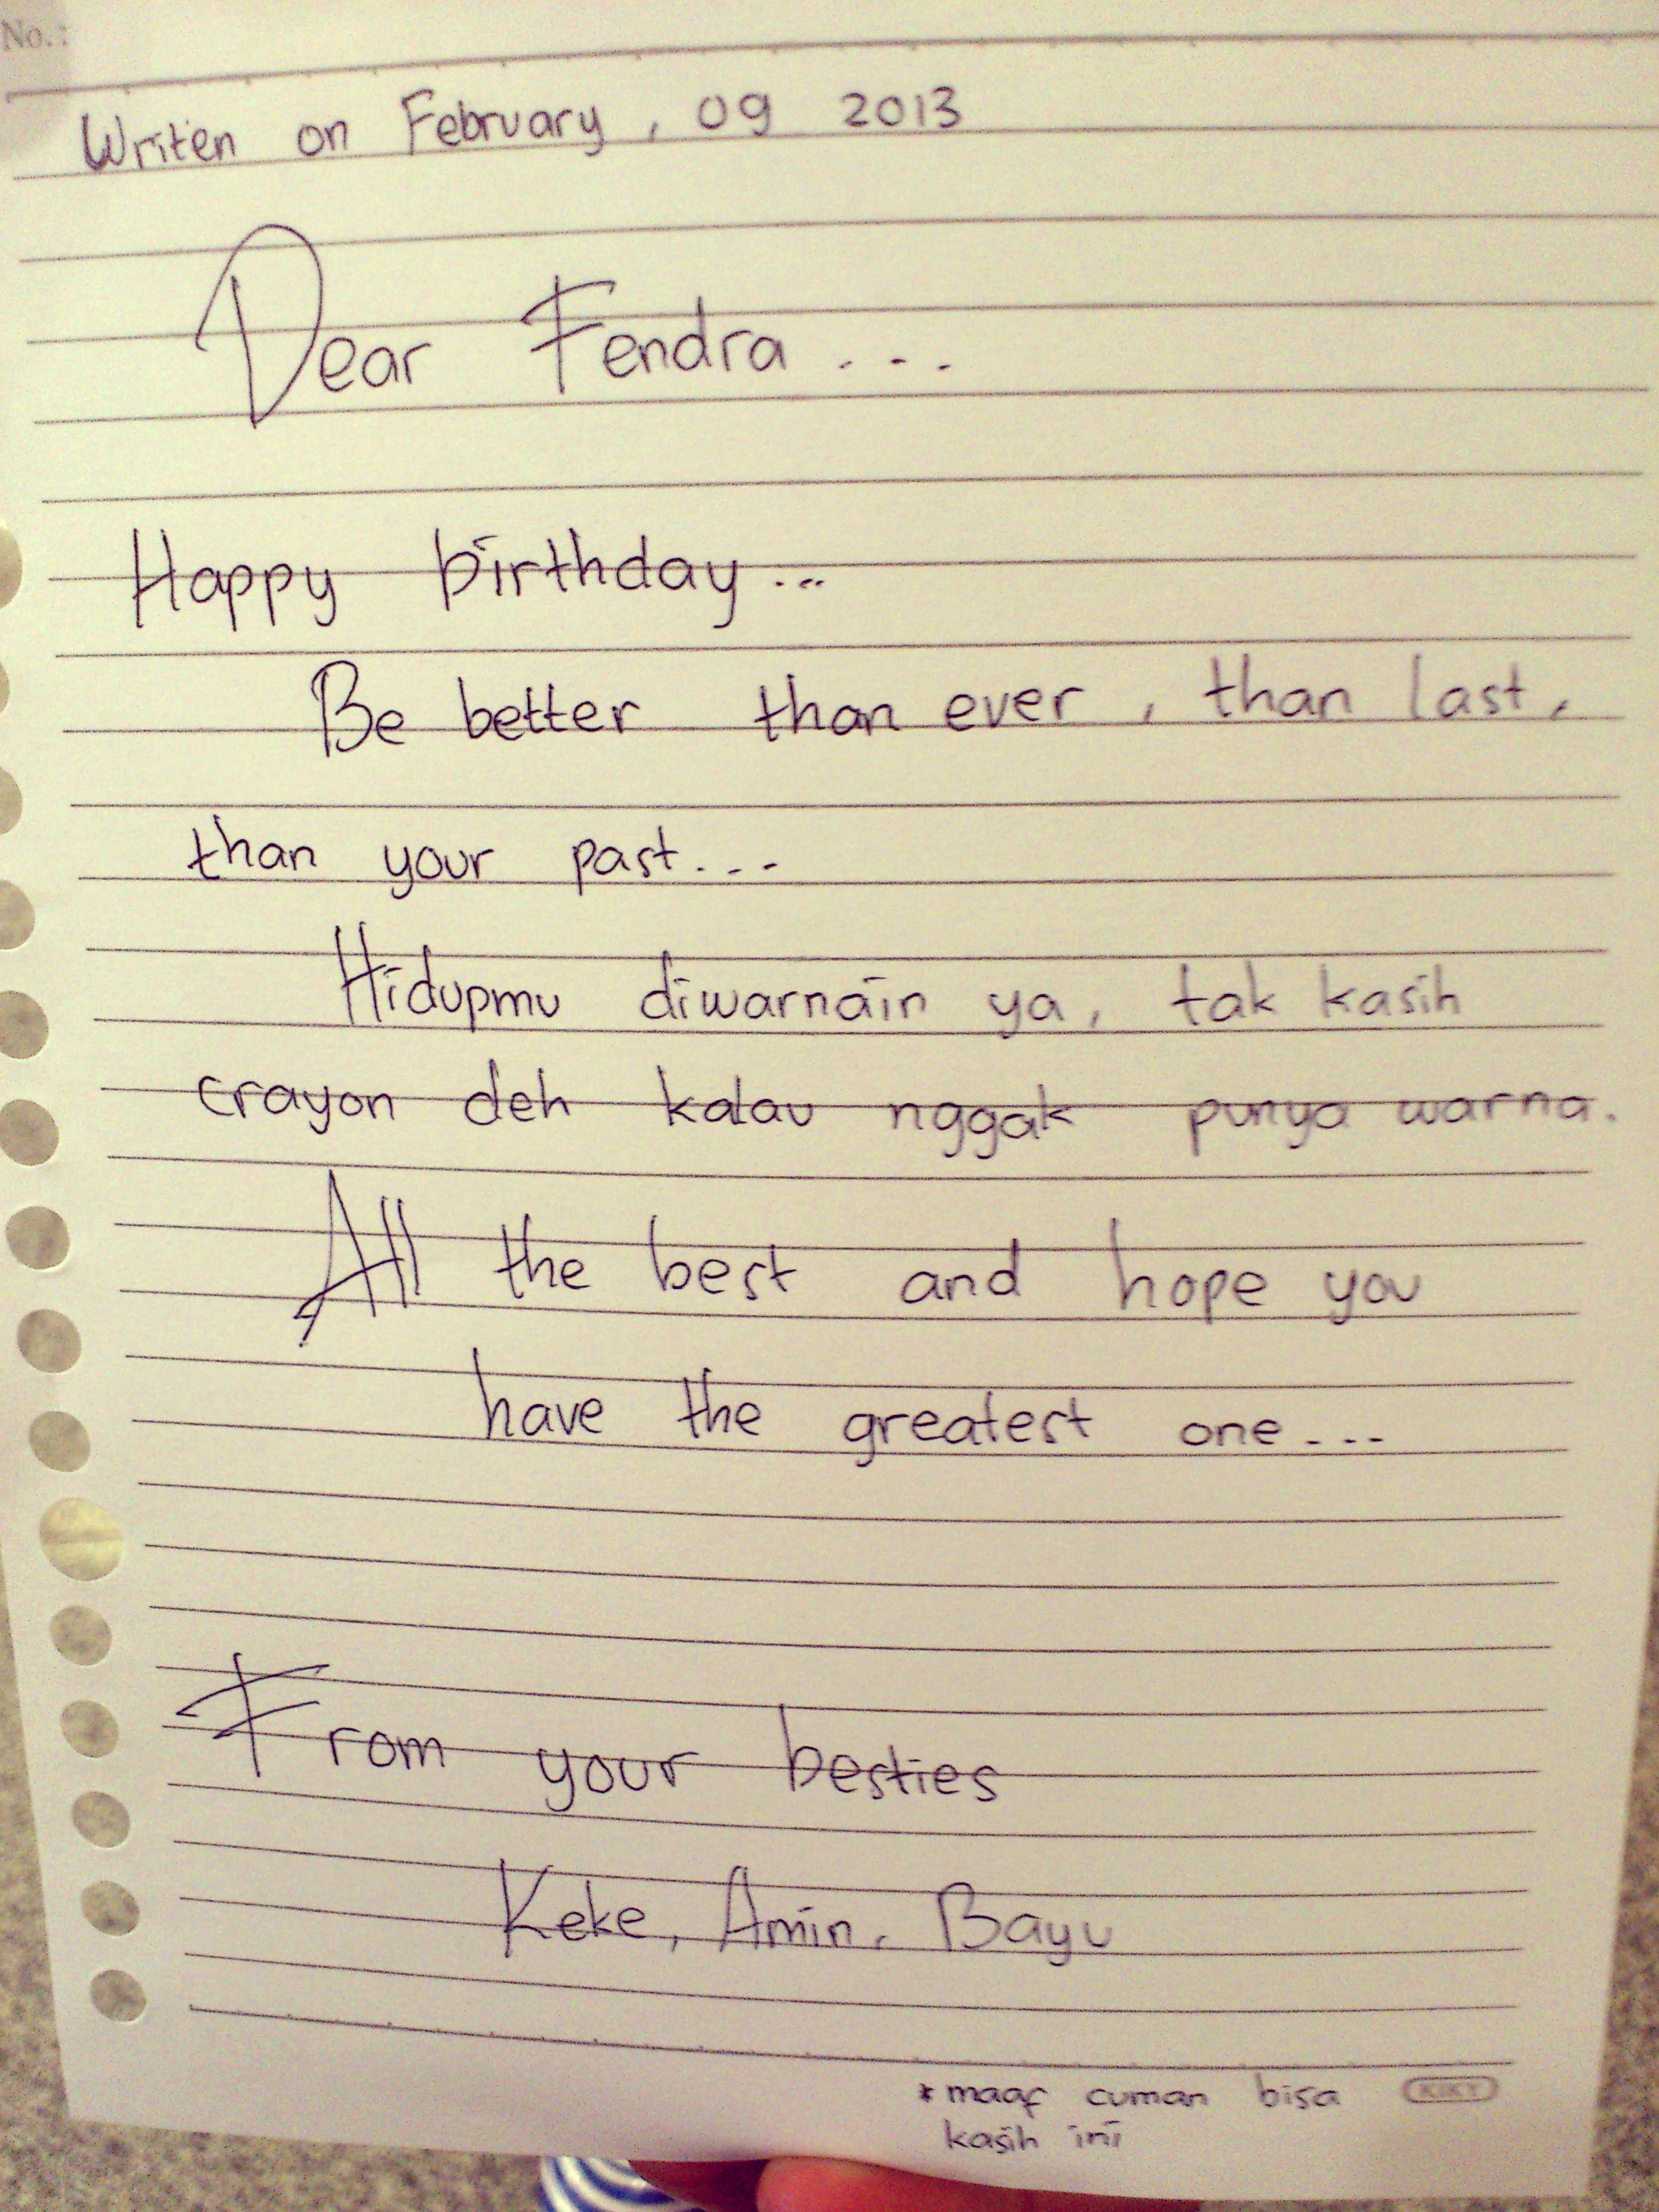 No.:
Writen on February, 09 2013
Dear Fendra ...
Happy birthday...
Be better than ever, than last,
than your past...
Hidupmu diwarnain ya, tak kasih
crayon deh kalau nggak punya warna.
All the best and hope you
have the greatest one...
From your besties
Keke, Amin, Bayu
* maaf cuman bisa KIKY
kasih ini